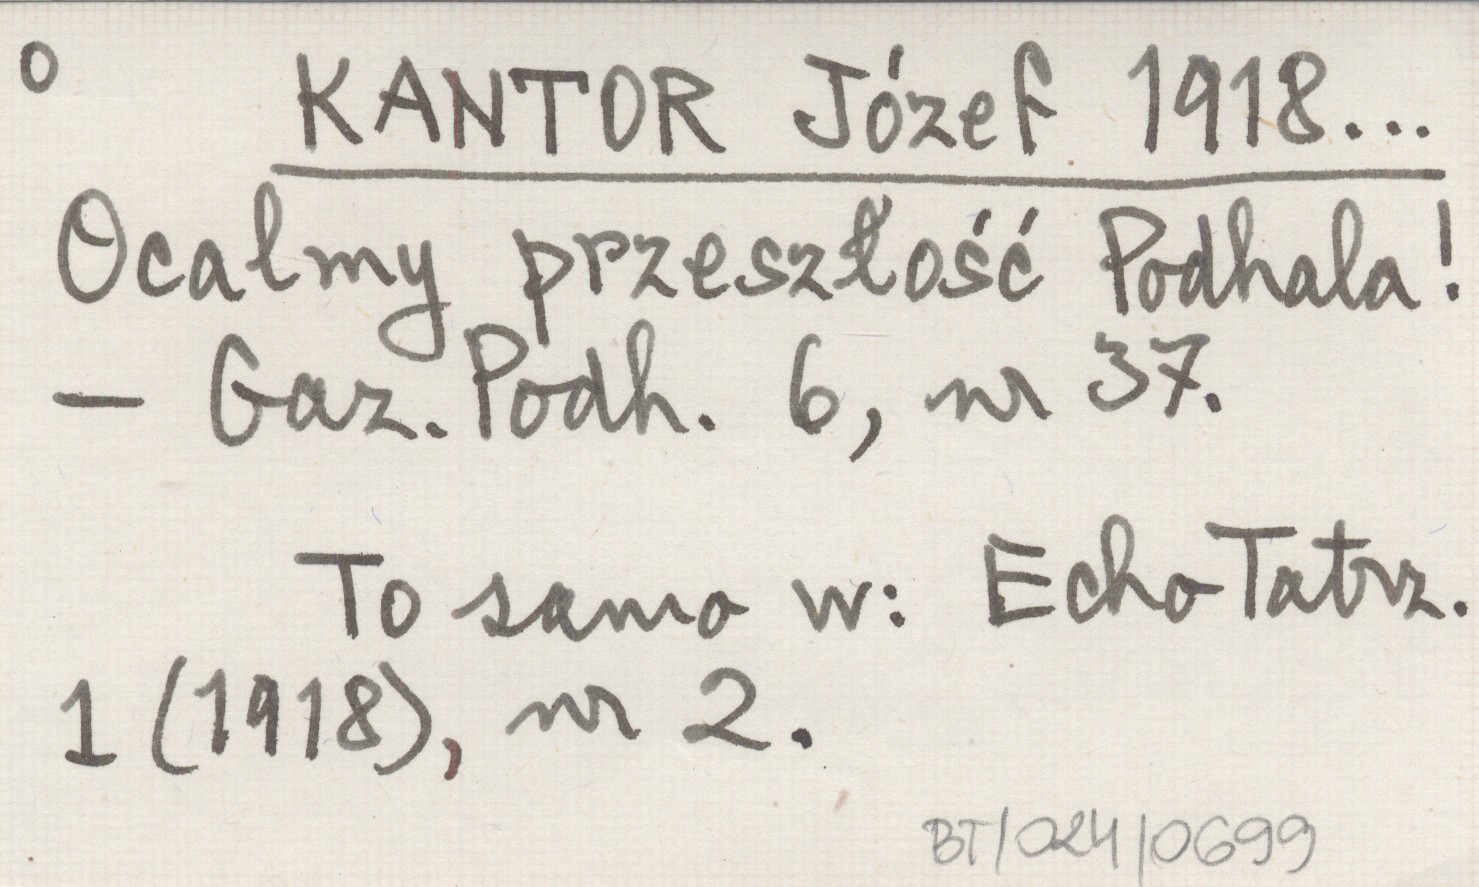 o KANTOR Józef 1918...
Ocalmy przeszłość Podhala!
— Gaz. Podh. 6, nr 37.
To samo w: Echo Tatrz.
1 (1918), nr 2.
BT/024/0699